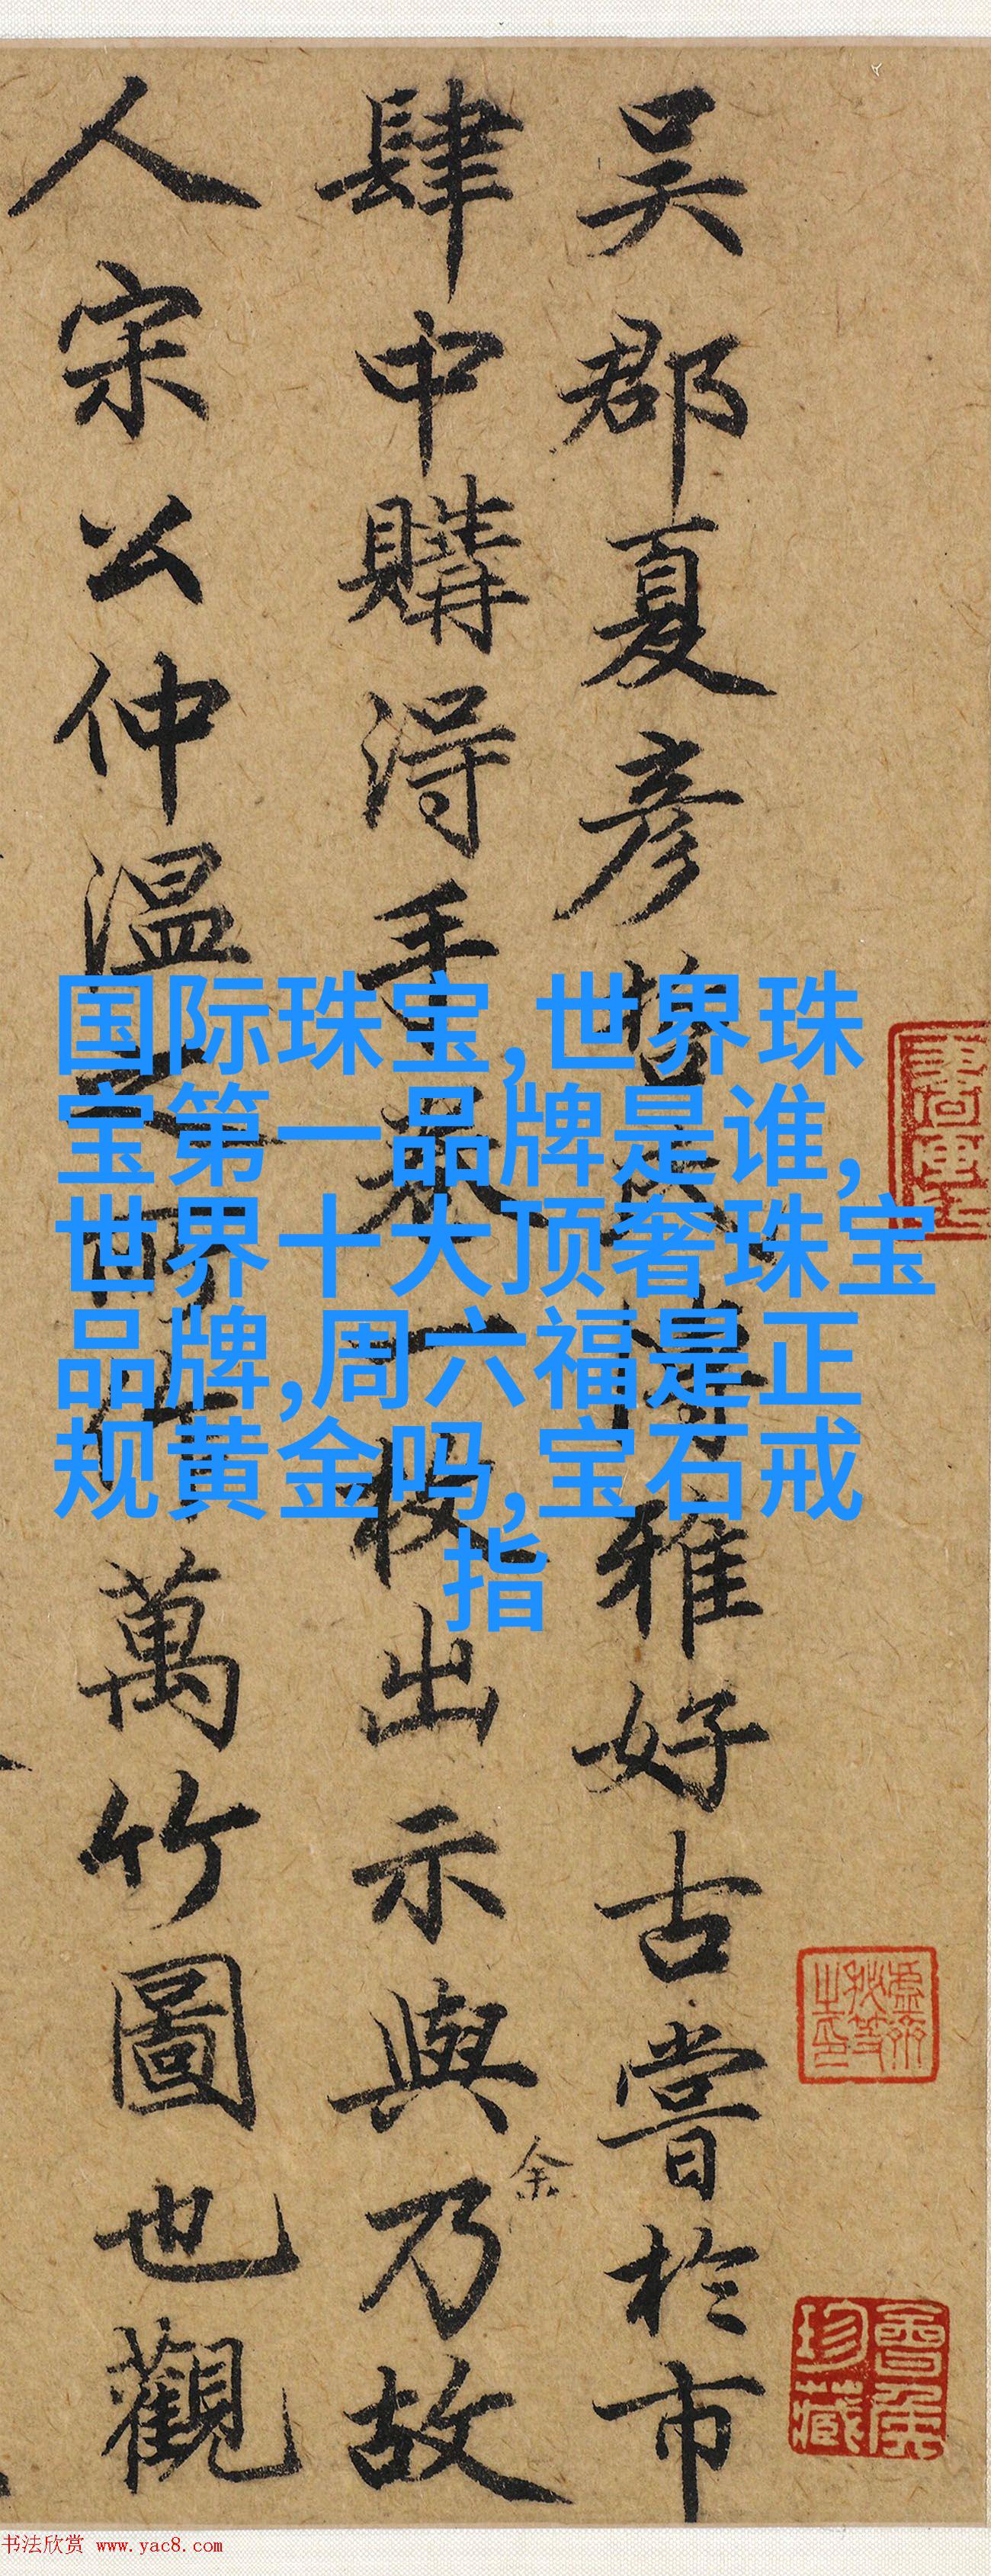 吴郡夏彦
雅好古嘗於市
肆中購得手
一
出示與乃故
余
人宋公仲温
萬竹圖也觀
国际珠宝,世界珠
宝第一品牌是谁,
世界十大顶奢珠宝
品牌,周六福是正
规黄金吗,宝石戒
指
珍藏
书法欣赏 www.yac8.com